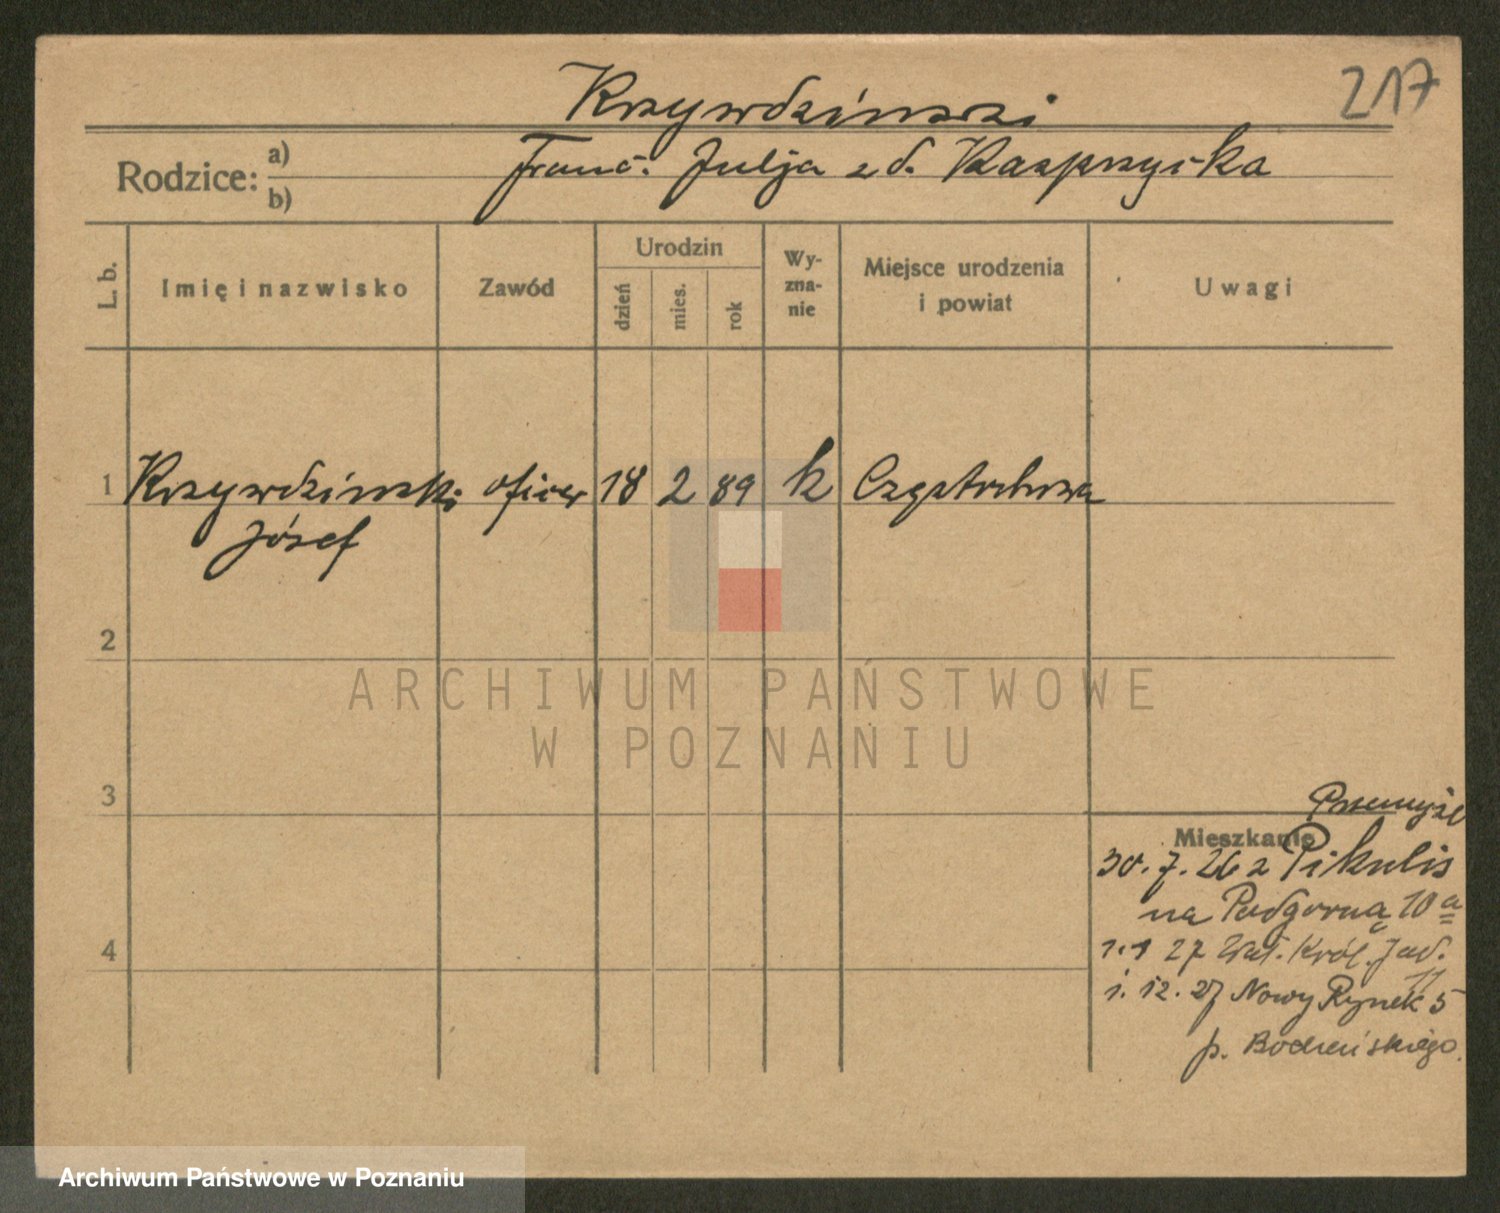 217
Krzywdzinski
Rodzice: a) b)
Franc. Julja z d. Kasprzycka
L. b.
Imię i nazwisko
Zawód
Urodzin
dzień
mies.
rok
Wy-
zna-
nie
Miejsce urodzenia
i powiat
Uwagi
1 Krzywdzinski oficer 18 2 89 k Częstochowa
Józef
2
3
4
Przemyśl
Mieszkanie
30.7.26 z Pikulis
na Podgorną 10a
1.1 27 Wał. Król. Jad.
11
1.12.27 Nowy Rynek 5
p.
ARCHIWUM PAŃSTWOWE
W POZNANIU
Archiwum Państwowe w Poznaniu